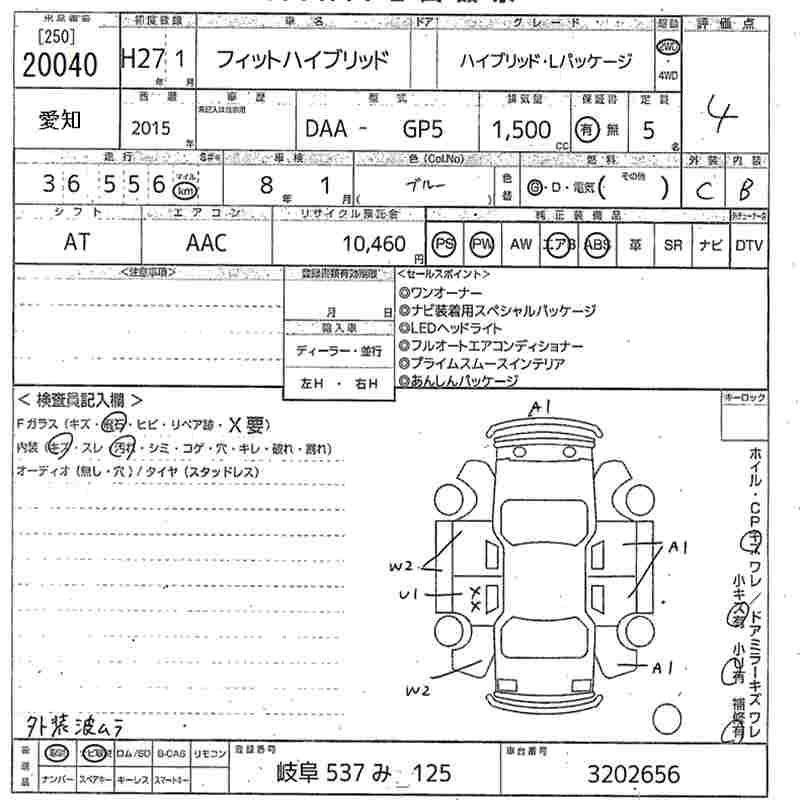 出品番号 初度登録 車名 ドア グレード 駆動 評価点
[250]
20040 H27 1 フィットハイブリッド ハイブリッド・Lパッケージ 2WD
年 月 ・4WD
西暦 車歴 型式 排気量 保証書 定員
愛知 2015 DAA - GP5 1,500 有 無 5 4
年 CC 名
走行 車検 色(Col.No) 燃料 外装 内装
36,556 マイル km 8年 1月 ブルー 色替 G・D・電気( その他 ) C B
シフト エアコン リサイクル預託金 純正装備品
AT AAC 10,460円 PS PW AW エアB ABS 革 SR ナビ DTV
<注意事項> 登録書類有効期限 <セールスポイント>
◎ワンオーナー
月 日 ◎ナビ装着用スペシャルパッケージ
輸入車 ◎LEDヘッドライト
ディーラー・並行 ◎フルオートエアコンディショナー
◎プライムスムースインテリア
左H ・ 右H ◎あんしんパッケージ
< 検査員記入欄 > キーロック
Fガラス (キズ・飛石・ヒビ・リペア跡・X要)
内装 (キズ・スレ・汚れ・シミ・コゲ・穴・キレ・破れ・割れ)
オーディオ (無し・穴) / タイヤ (スタッドレス)
A1
W2
A1
U1 X X
W2
A1
ホイル・CPキズ ワレ/ドアミラーキズ ワレ
小キズ有 小U有 補修有
外装波ムラ
取説 ナビ取説 ロム/SD B-CAS リモコン 登録番号 車台番号
ナンバー スペアキー キーレス スマートキー 岐阜 537 み 125 3202656